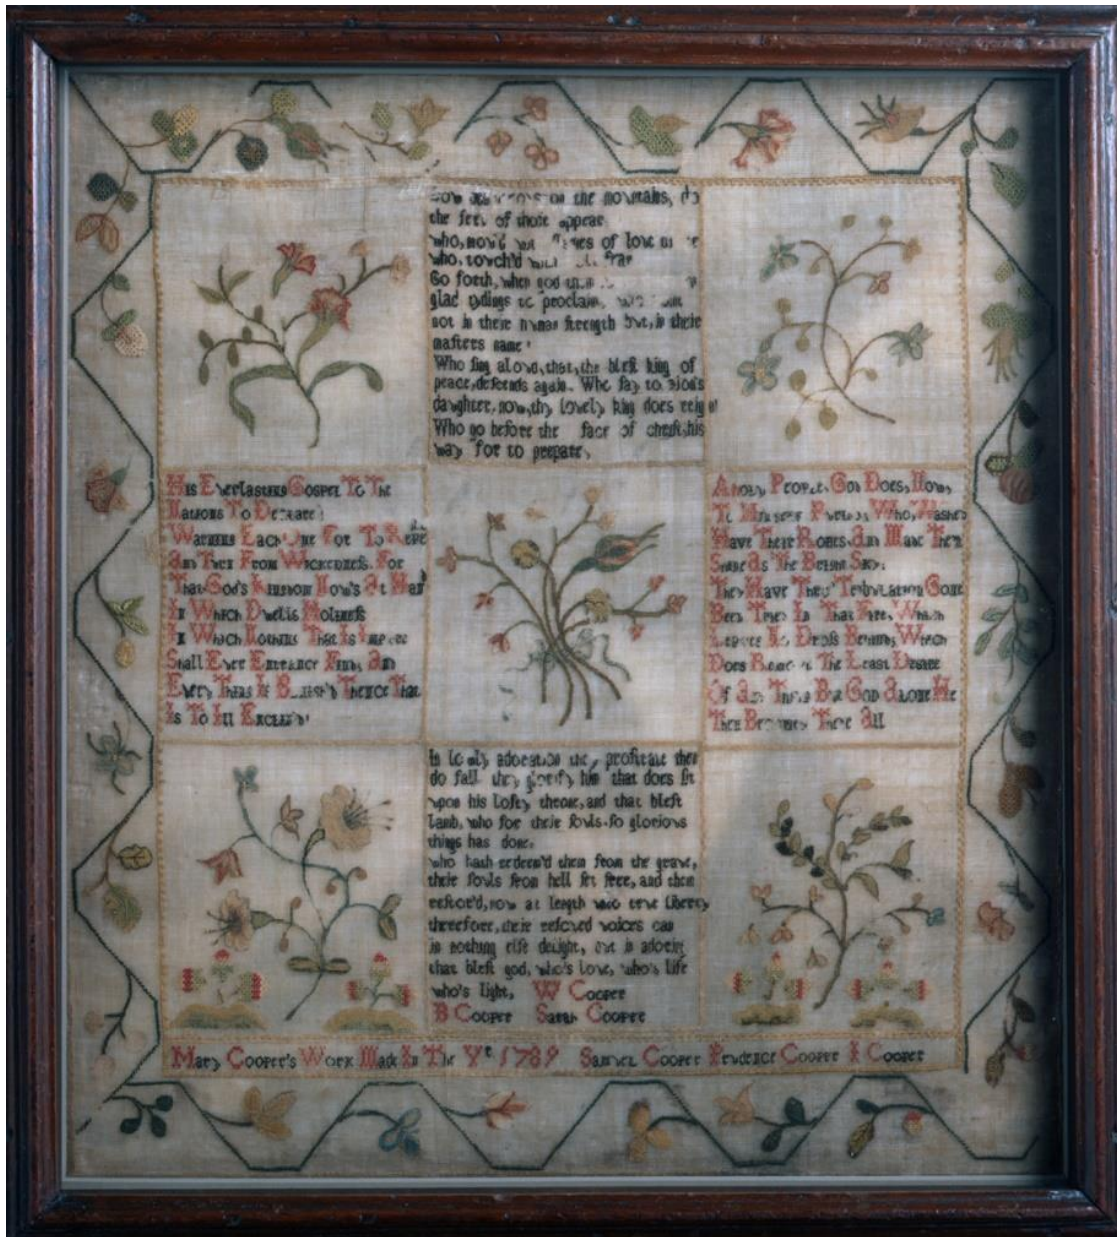 on the mountains, do
the feet of those appear
who, mov'd of love
who, touch'd
Go forth, when god
glad tydings to proclaim,
not in there strength but, in their
masters name
Who sing aloud, that, the blest king of
peace, defends again. Who say to
daughter, now, thy lovely king does reign
Who go before the face of christ, his
way for to prepare,
His Everlasting Gospel To The
Nations To
Each One For To
And Them From Wickedness. For
That God's Kingdom Now's At
In Which Dwells Holiness
In Which Nothing That Is
Shall Ever Entrance Find, And
Every Thing Is Thence That
Is To Ill
People, God Does,
To Who, Washed
Have Their Robes, And Made Them
As The Bright
They Have Thro' Tribulation Gone
Been Tryed In That Fire, Which
Leaves No Dross Behind, Which
Does The Least Desire
Of Any Thing But God Alone He
Then Becomes There All
In lowly adoration they prostrate then
do fall they glorify him that does sit
upon his lofty throne, and that blest
Lamb, who for their souls. so glorious
things has done.
who hath redeem'd them from the grave,
their souls from hell set free, and them
restor'd, now at length true liberty
therefore, their voices can
in nothing else delight, but in adoring
that blest god, who's love, who's life
who's light, W Cooper
B Cooper Sarah Cooper
Mary Cooper's Work Made In The Yr 1789 Samuel Cooper Prudence Cooper I Cooper